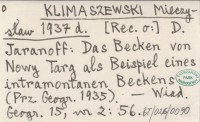 KLIMASZEWSKI Mieczy-
sław 1937 d. [Rec. o:] D.
Jaranoff: Das Becken von
Nowy Targ als Beispiel eines
intramontanen Beckens
(Prz. Geogr. 1935). — Wiad.
Geogr. 15, nr 2: 56.